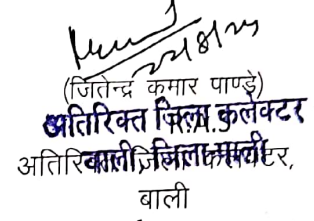 (जितेन्द्र कुमार पाण्डे)
R.A.S
अतिरिक्त जिला कलेक्टर
बाली, जिला-पाली
अतिरिक्त जिला कलेक्टर,
बाली